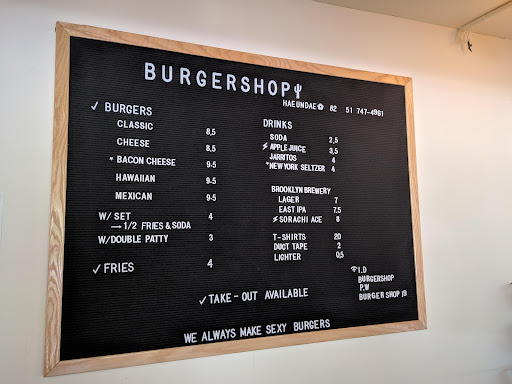 BURGERSHOP
HAEUNDAE 82 51 747-4961
✓ BURGERS
CLASSIC 8,5
CHEESE 8,5
* BACON CHEESE 9.5
HAWAIIAN 9.5
MEXICAN 9.5
W/ SET 4
→ 1/2 FRIES & SODA
W/DOUBLE PATTY 3
✓ FRIES 4
DRINKS
SODA 2,5
⚡ APPLE JUICE 3,5
JARRITOS 4
*NEW YORK SELTZER 4
BROOKLYN BREWERY
LAGER 7
EAST IPA 7,5
⚡ SORACHI ACE 8
T-SHIRTS 20
DUCT TAPE 2
LIGHTER 0,5
✓ TAKE-OUT AVAILABLE
I.D
BURGERSHOP
P.W
BURGER SHOP
WE ALWAYS MAKE SEXY BURGERS